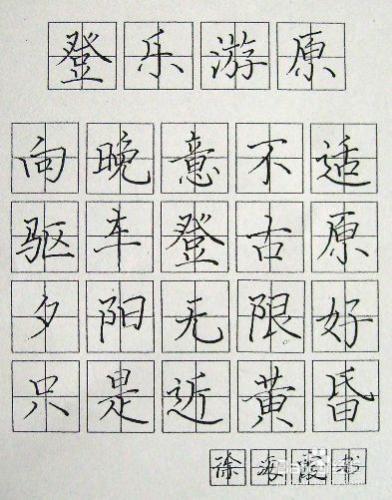 登乐游原
向晚意不适
驱车登古原
夕阳无限好
只是近黄昏
徐海霞书